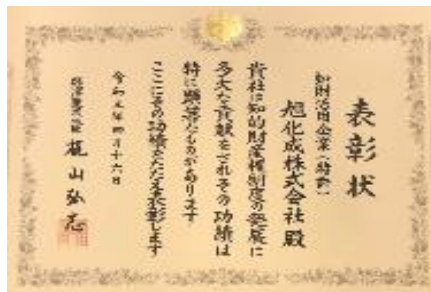 表彰状
知財活用企業(特許)
旭化成株式会社殿
貴社は知的財産権制度の発展に
多大な貢献をされその功績は
特に顕著なものがあります
ここにその功績をたたえ表彰します
四月十六日
経済産業大臣 梶山弘志